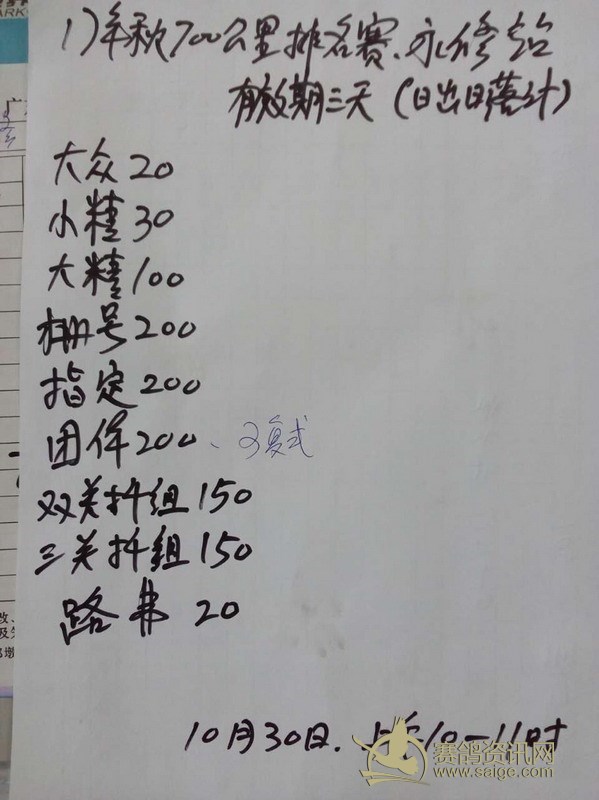 17年秋700公里排名赛、永修站
有效期三天（日出日落计）
大众20
小精30
大精100
棚号200
指定200
团体200、可复式
双关抖组150
三关抖组150
路费 20
10月30日. 上午10—11时
赛鸽资讯网
www.saige.com